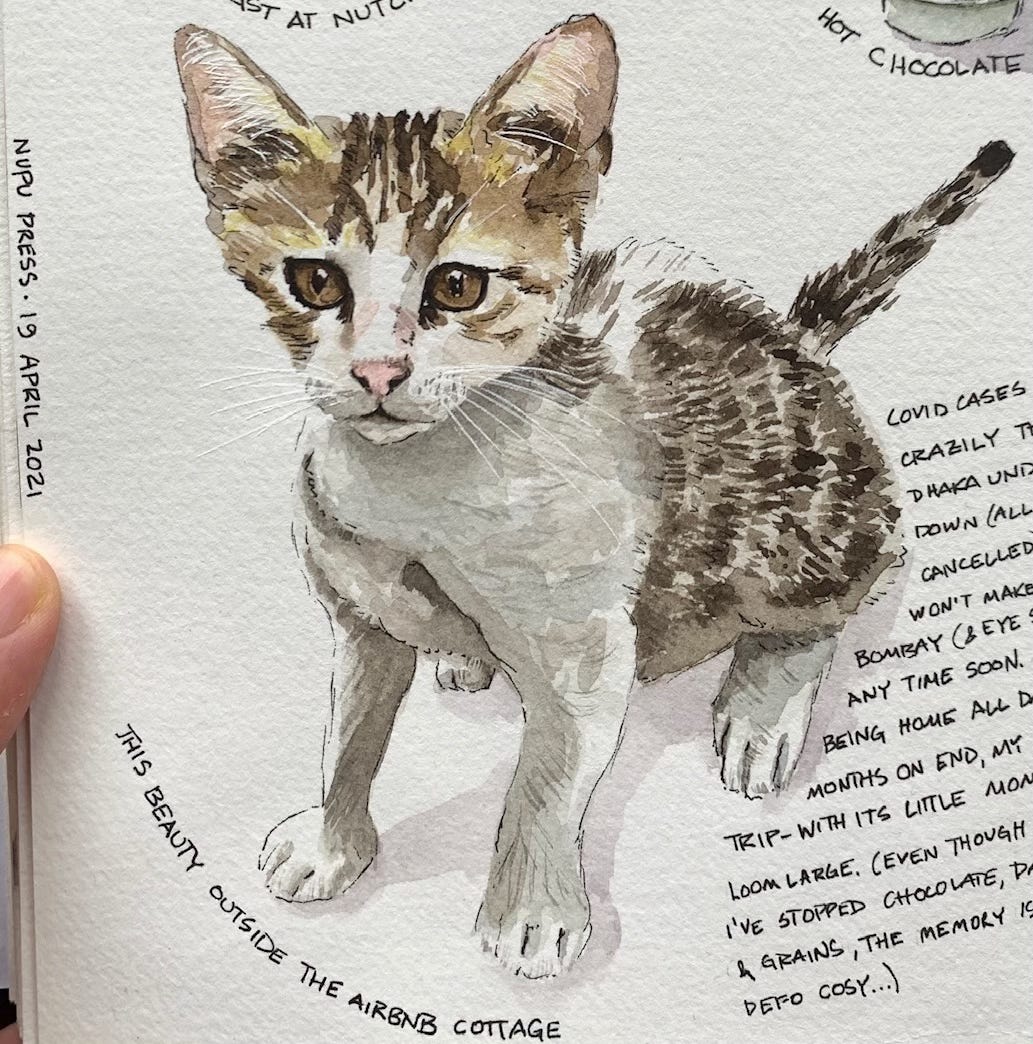 AST AT NUTC
HOT CHOCOLATE
NUPU PRESS · 19 APRIL 2021
COVID CASES
CRAZILY
DHAKA UND
DOWN (ALL
CANCELLED
WON'T MAKE
BOMBAY (& EYE
ANY TIME SOON.
BEING HOME ALL
MONTHS ON END, MY
TRIP - WITH ITS LITTLE MOM
LOOM LARGE. (EVEN THOUGH
I'VE STOPPED CHOCOLATE,
& GRAINS, THE MEMORY IS
DEFO COSY...)
THIS BEAUTY OUTSIDE THE AIRBNB COTTAGE